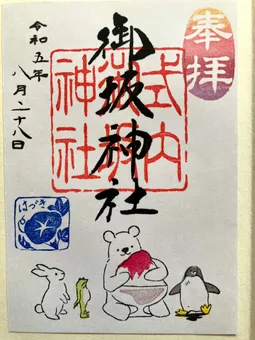 奉拝
御坂神社
式内
御坂
神社
令和五年
八月二十八日
はづき